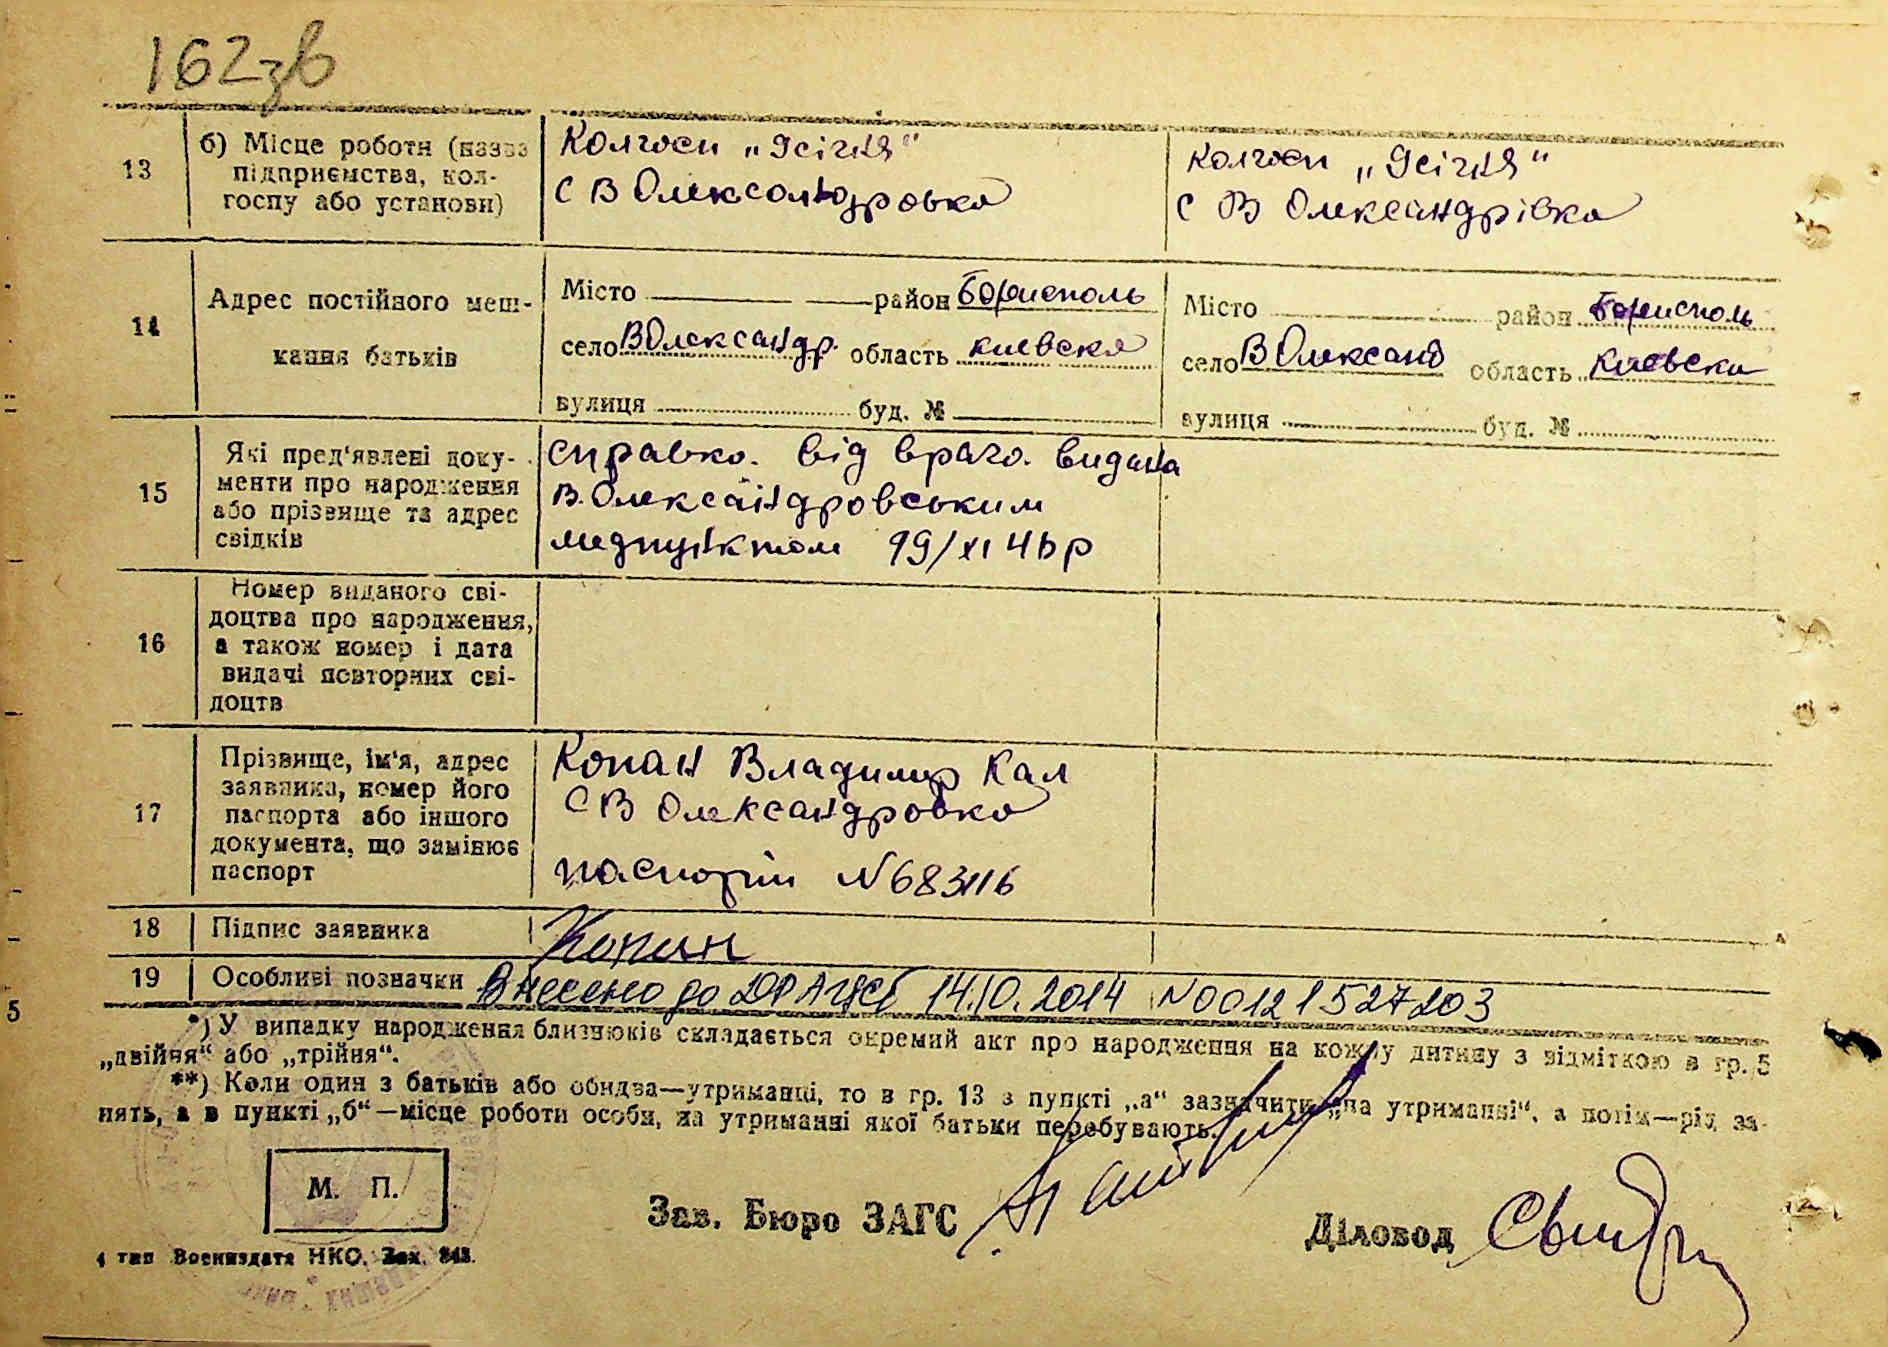 162зв
13
б) Місце роботи (назва
підприємства, кол-
госпу або установи)
Колгосп „Усічня"
С В Олександровка
колгосп „Усічня"
с В Олександрівка
14
Адрес постійного меш-
кання батьків
Місто район Бориспoль
село В Олександр. область киевска
вулиця буд. №
Місто район Бориспoль
село В Олександ область Киевска
вулиця буд. №
15
Які пред'явлені доку-
менти про народження
або прізвище та адрес
свідків
справка. від врача. видана
В. Олександровським
медпунктом 19/XI
16
Номер виданого сві-
доцтва про народження,
а також номер і дата
видачі повторних сві-
доцтв
17
Прізвище, ім'я, адрес
заявника, номер його
паспорта або іншого
документа, що замінює
паспорт
Копан Владимир Кал
С В Олександровка
паспорт N 683116
18
Підпис заявника
Копан
19
Особливі позначки
Внесено до ДРАЦСГ 14.10.2014 N00121527203
*) У випадку народження близнюків складається окремий акт про народження на кожну дитину з відміткою в гр. 5
„двійня" або „трійня".
**) Коли один з батьків або обидва—утриманці, то в гр. 13 з пункті „а" зазначити „на утриманні", а потім—рід за-
нять, а в пункті „б"—місце роботи особи, на утриманні якої батьки перебувають.
М. П.
Зав. Бюро ЗАГС
Діловод
4 тип Воениздата НКО. Зак. 843.
5